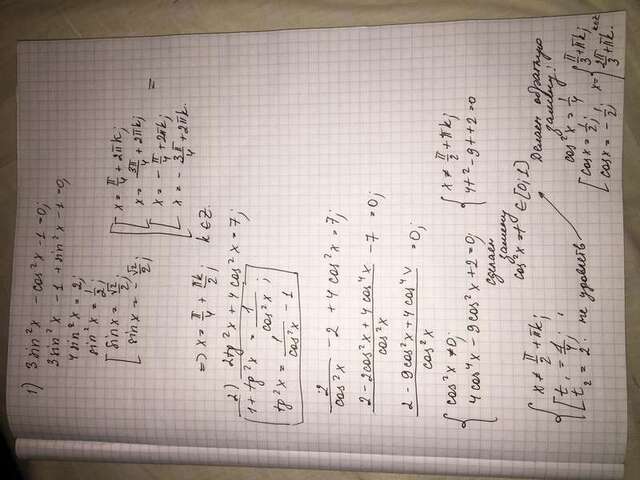 1) 3sin²x - cos²x - 1 = 0;
3sin²x - 1 + sin²x - 1 = 0;
4sin²x = 2;
sin²x = 1/2;
[ sinx = √2/2;
sinx = -√2/2;
[ x = π/4 + 2πk;
x = 3π/4 + 2πk;
x = -π/4 + 2πk;
x = -3π/4 + 2πk.
=
=> x = π/4 + πk/2; k ∈ Z.
2) 2tg²x + 4cos²x = 7;
1 + tg²x = 1/cos²x;
tg²x = 1/cos²x - 1
2/cos²x - 2 + 4cos²x = 7;
(2 - 2cos²x + 4cos⁴x)/cos²x - 7 = 0;
(2 - 9cos²x + 4cos⁴x)/cos²x = 0;
{ cos²x ≠ 0;
4cos⁴x - 9cos²x + 2 = 0;
сделаем
замену
cos²x = t ∈ [0;1]
{ x ≠ π/2 + πk;
4t² - 9t + 2 = 0
{ x ≠ π/2 + πk;
[ t₁ = 1/4;
t₂ = 2. не удовлетв
Делаем обратную
замену:
cos²x = 1/4
[ cosx = 1/2;
cosx = -1/2;
x = { π/3 + πk;
2π/3 + πk. k∈Z